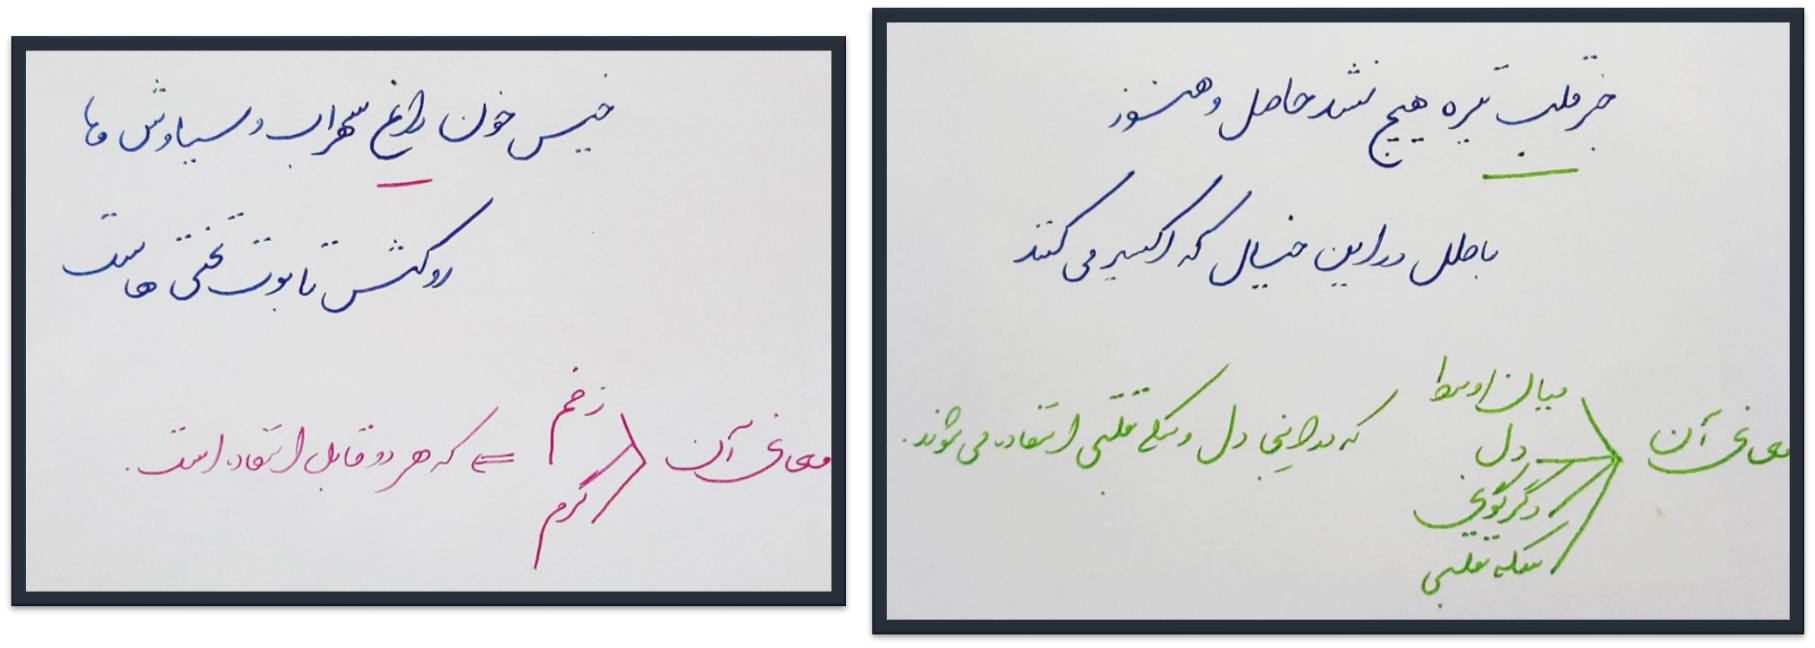 جز قلب تیره هیچ نشد حاصل و هنوز
باطل در این خیال که اکسیر می کنند
معانی آن
میان و وسط
دل
دگرگونی
سکه تقلبی
که در اینجا دل و سکه تقلبی استفاده می شوند.
خیس خون داغ سهراب و سیاوش ها
روکش تابوت تختی هاست
معانی آن
زخم
گرم
⇐ که هر دو قابل استفاده است.